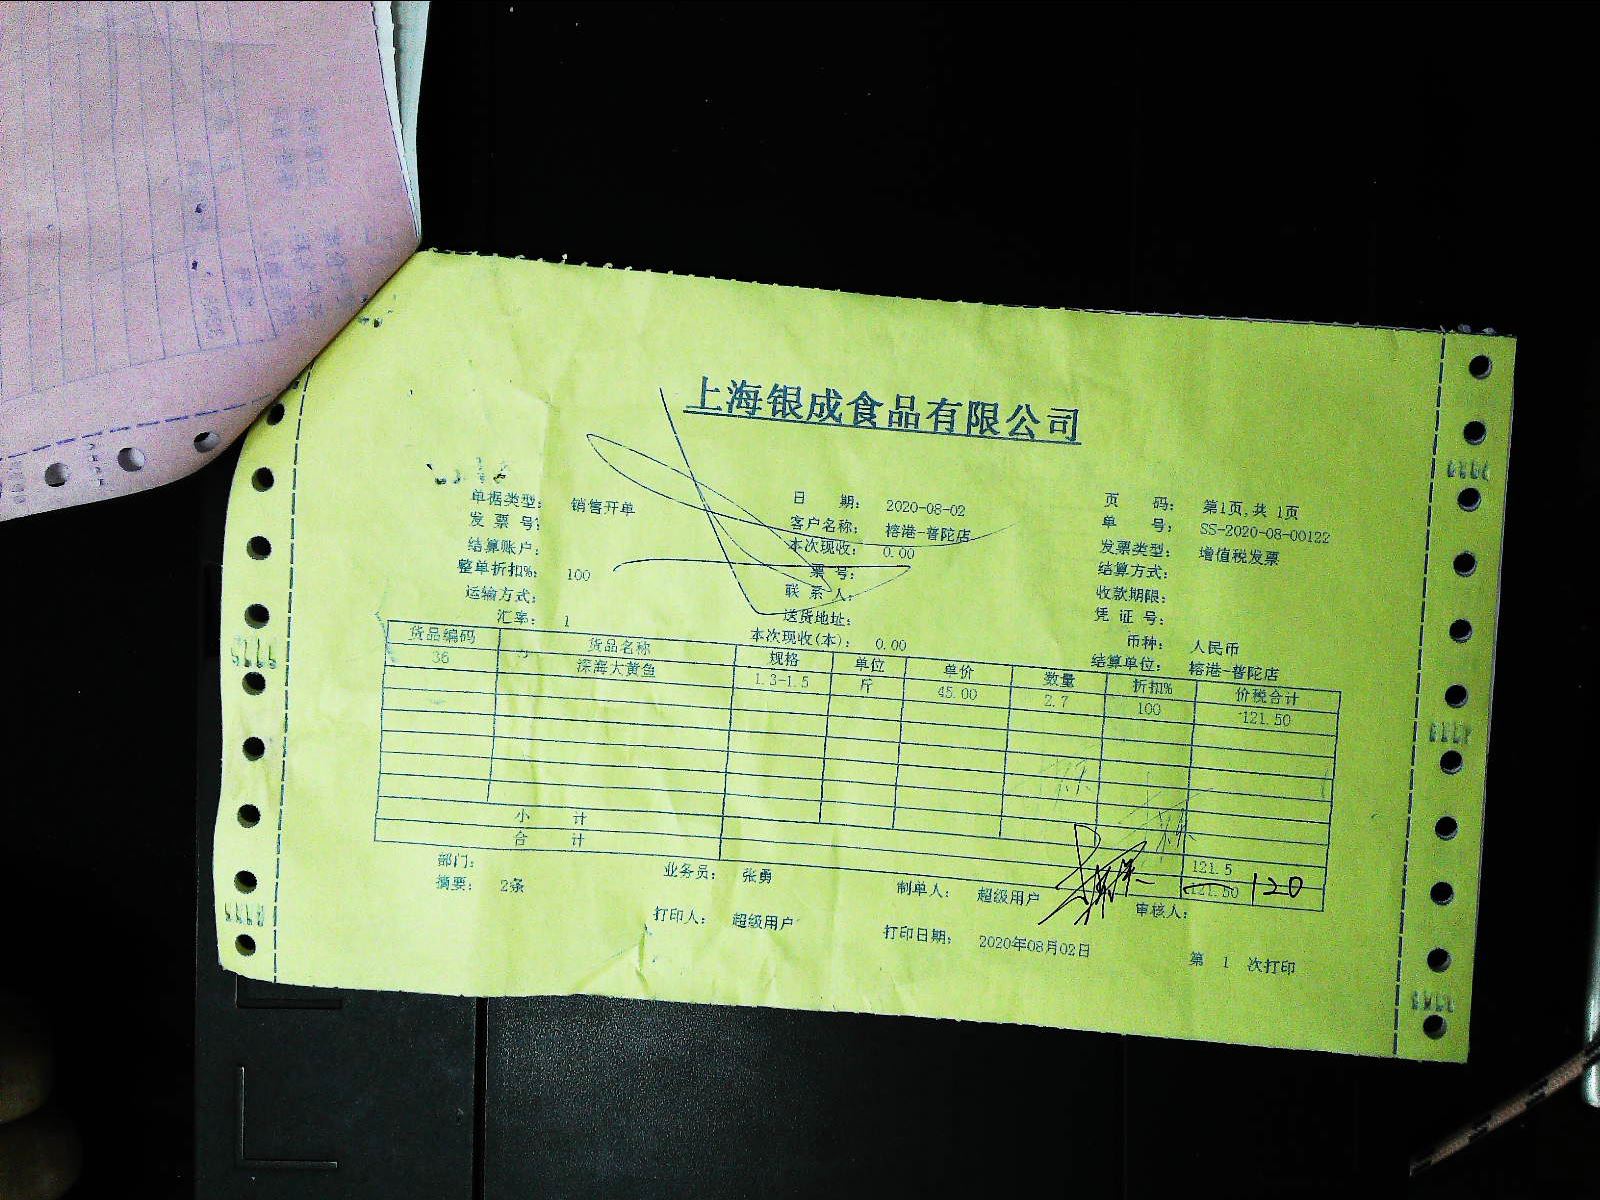 上海银成食品有限公司
单据类型： 销售开单 日 期： 2020-08-02 页 码： 第1页,共 1页
发 票 号： 客户名称： 榕港-普陀店 单 号： SS-2020-08-00122
结算账户： 本次现收： 0.00 发票类型： 增值税发票
整单折扣%： 100 票号： 结算方式：
运输方式： 联 系 人： 收款期限：
汇率： 1 送货地址： 凭 证 号：
本次现收(本)： 0.00 币种： 人民币
结算单位： 榕港-普陀店
货品编码 货品名称 规格 单位 单价 数量 折扣% 价税合计
36 深海大黄鱼 1.3-1.5 斤 45.00 2.7 100 121.50
小 计 121.5
合 计 121.50 120
部门： 业务员： 张勇 制单人： 超级用户 审核人：
摘要： 2条 打印人： 超级用户 打印日期： 2020年08月02日 第 1 次打印